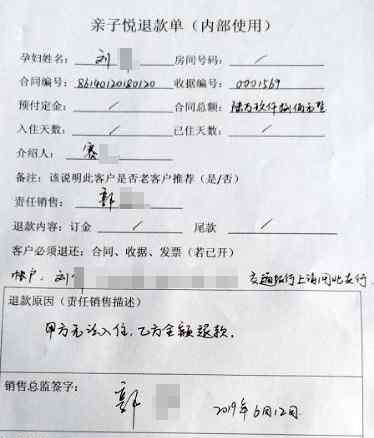 亲子悦退款单（内部使用）
孕妇姓名：刘 房间号码：/
合同编号：86140120180120 收据编号：0001569
预付定金：/ 合同总额：陆万玖仟捌佰元整
入住天数：/ 已住天数：/
介绍人：
备注：该说明此客户是否老客户推荐（是/否）
责任销售：郭
退款内容：订金 / 尾款 /
客户必须退还：合同、收据、发票（若已开）
帐户：刘 交通银行上海闵北支行
退款原因（责任销售描述）
甲方无法入住，乙方全额退款。
销售总监签字：
郭 2019年6月12日